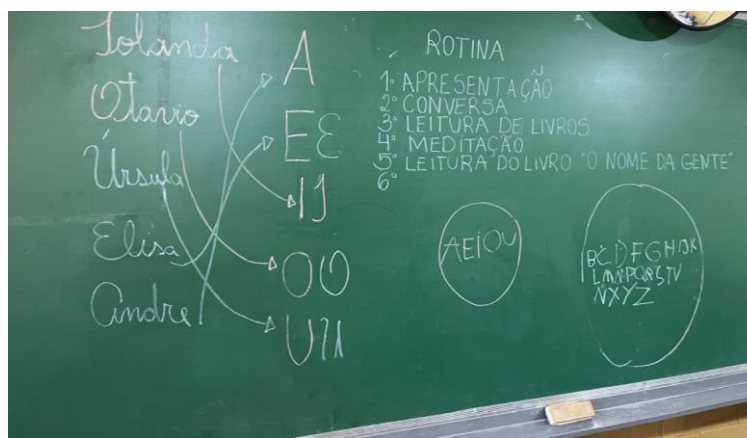 Iolanda
Otavio
Úrsula
Elisa
Andre
A
E E
I I
O O
U U
ROTINA
1º APRESENTAÇÃO
2º CONVERSA
3º LEITURA DE LIVROS
4º MEDITAÇÃO
5º LEITURA DO LIVRO "O NOME DA GENTE"
6º
AEIOU
BCDFGHJK
LMNPQRSTV
WXYZ